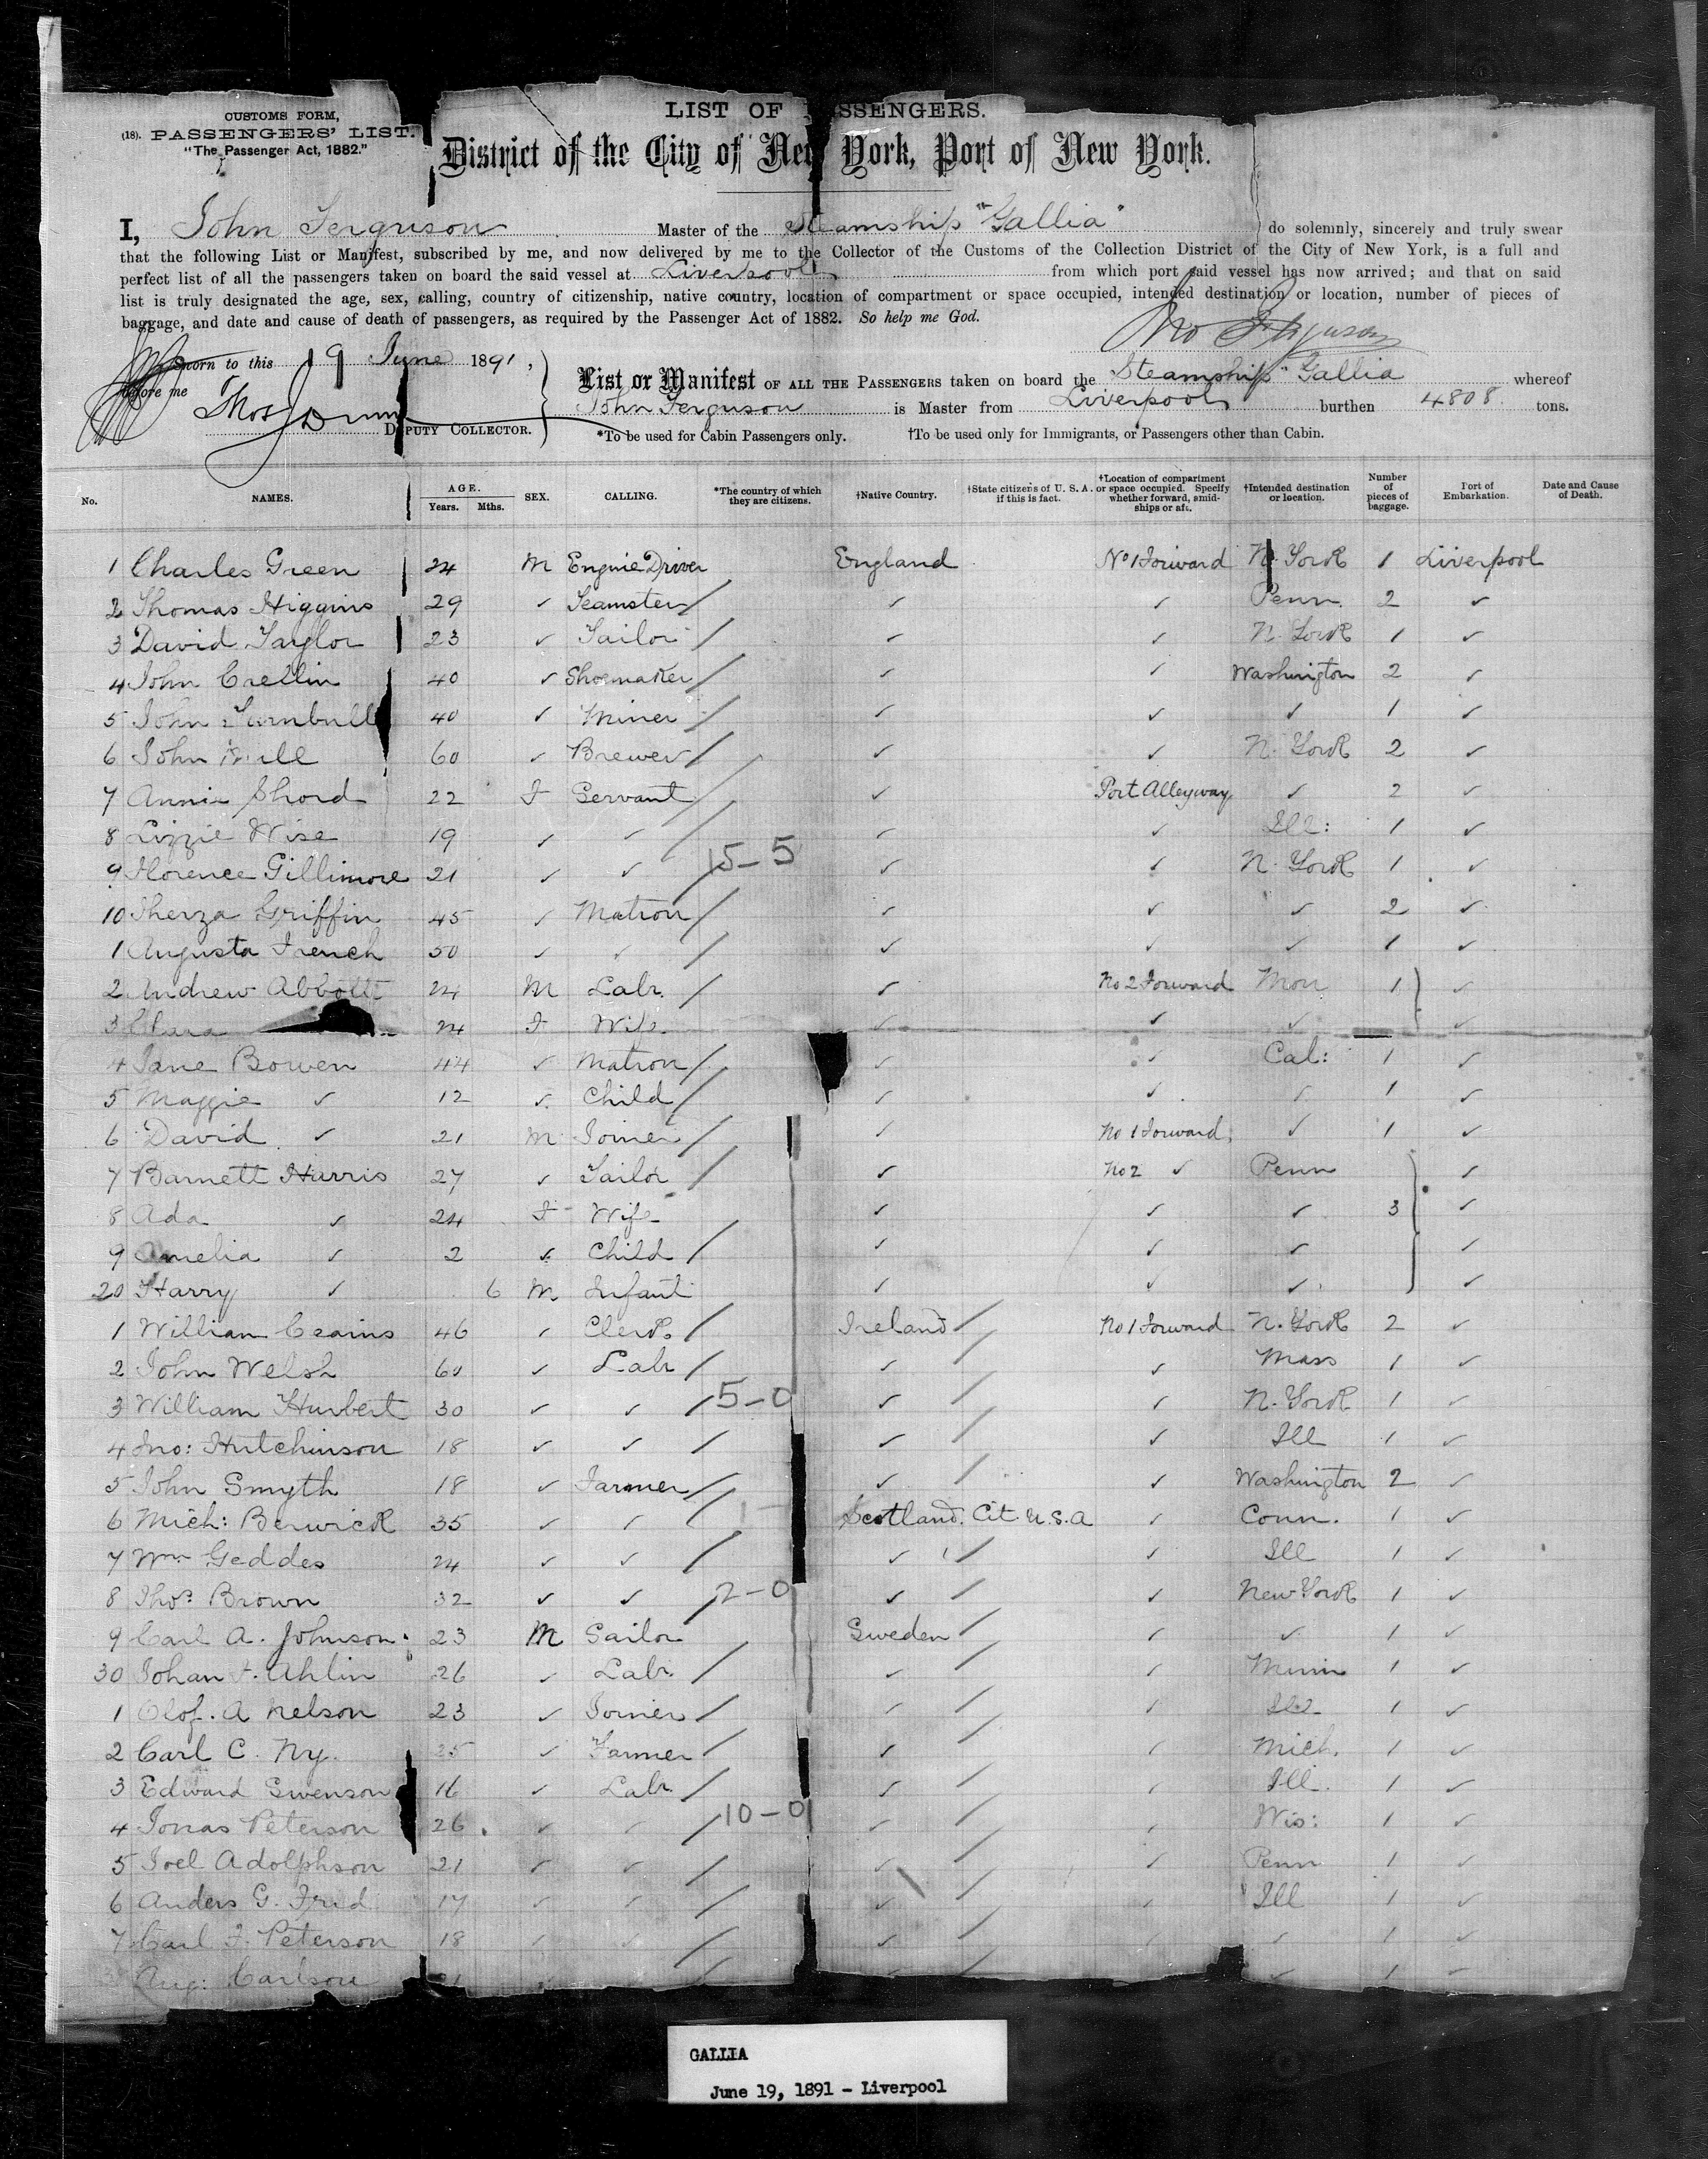 CUSTOMS FORM,
(18). PASSENGERS' LIST.
"The Passenger Act, 1882."
LIST OF PASSENGERS.
District of the City of New York, Port of New York.
I, John Ferguson Master of the Steamship "Gallia" do solemnly, sincerely and truly swear
that the following List or Manifest, subscribed by me, and now delivered by me to the Collector of the Customs of the Collection District of the City of New York, is a full and
perfect list of all the passengers taken on board the said vessel at Liverpool from which port said vessel has now arrived; and that on said
list is truly designated the age, sex, calling, country of citizenship, native country, location of compartment or space occupied, intended destination or location, number of pieces of
baggage, and date and cause of death of passengers, as required by the Passenger Act of 1882. So help me God.
Jno Ferguson
Sworn to this 19 June 1891,
before me
Thos
DEPUTY COLLECTOR.
List or Manifest OF ALL THE PASSENGERS taken on board the Steamship "Gallia whereof
John Ferguson is Master from Liverpool burthen 4808 tons.
*To be used for Cabin Passengers only. †To be used only for Immigrants, or Passengers other than Cabin.
No. NAMES. AGE. Years. Mths. SEX. CALLING. *The country of which they are citizens. †Native Country. †State citizens of U. S. A. if this is fact. †Location of compartment or space occupied. Specify whether forward, amidships or aft. †Intended destination or location. Number of pieces of baggage. Port of Embarkation. Date and Cause of Death.
1 Charles Green 24 M Engine Driver England No 1 Forward N. York 1 Liverpool
2 Thomas Higgins 29 ✓ Teamster / ✓ ✓ Penn. 2 ✓
3 David Taylor 23 ✓ Tailor / ✓ ✓ N. York 1 ✓
4 John Crellin 40 ✓ Shoemaker / ✓ ✓ Washington 2 ✓
5 John Turnbull 40 ✓ Miner / ✓ ✓ ✓ 1 ✓
6 John 60 ✓ Brewer / ✓ ✓ N. York 2 ✓
7 Annie Shord 22 F Servant / ✓ Port Alleyway ✓ 2 ✓
8 Lizzie Wise 19 ✓ ✓ / ✓ ✓ Ill: 1 ✓
9 Florence Gillimore 21 ✓ ✓ / 15-5 ✓ ✓ N. York 1 ✓
10 Therza Griffin 45 ✓ Matron / ✓ ✓ ✓ 2 ✓
1 Augusta French 50 ✓ ✓ / ✓ ✓ ✓ 1 ✓
2 Andrew Abbott 24 M Labr. / ✓ No 2 Forward Mon 1 ✓
3 Clara 24 F Wife ✓ ✓ ✓ ✓
4 Jane Bowen 44 ✓ Matron / ✓ ✓ Cal: 1 ✓
5 Maggie ✓ 12 ✓ Child / ✓ ✓ ✓ 1 ✓
6 David ✓ 21 M Joiner / ✓ No 1 Forward ✓ 1 ✓
7 Barnett Harris 27 ✓ Tailor / ✓ No 2 ✓ Penn ✓
8 Ada ✓ 24 F Wife ✓ ✓ ✓ 3 ✓
9 Amelia ✓ 2 ✓ Child / ✓ ✓ ✓ ✓
20 Harry ✓ 6 M Infant ✓ ✓ ✓ ✓
1 William Crains 46 ✓ Clerk / Ireland / No 1 Forward N. York 2 ✓
2 John Welsh 60 ✓ Labr / ✓ / ✓ Mass 1 ✓
3 William Hurbert 30 ✓ ✓ / 5-0 ✓ / ✓ N. York 1 ✓
4 Jno: Hutchinson 18 ✓ ✓ / ✓ / ✓ Ill 1 ✓
5 John Smyth 18 ✓ Farmer / ✓ / ✓ Washington 2 ✓
6 Mich: Berwick 35 ✓ ✓ / Scotland. Cit U.S.A ✓ Conn. 1 ✓
7 Wm Geddes 24 ✓ ✓ / ✓ / ✓ Ill 1 ✓
8 Thos. Brown 32 ✓ ✓ / 2-0 ✓ / ✓ New York 1 ✓
9 Carl A. Johnson 23 M Sailor Sweden / ✓ ✓ 1 ✓
30 Johan F. Ahlin 26 ✓ Labr. / ✓ / ✓ Minn 1 ✓
1 Olof. A Nelson 23 ✓ Joiner / ✓ / ✓ Ill 1 ✓
2 Carl C. Ny. 25 ✓ Farmer / ✓ / ✓ Mich. 1 ✓
3 Edward Swenson 16 ✓ Labr / ✓ / ✓ Ill. 1 ✓
4 Jonas Peterson 26 ✓ ✓ / 10-0 ✓ / ✓ Wis: 1 ✓
5 Joel Adolphson 21 ✓ ✓ / ✓ / ✓ Penn 1 ✓
6 Anders G. Frid 17 ✓ ✓ / ✓ / ✓ Ill 1 ✓
7 Carl F. Peterson 18 ✓ ✓ / ✓ / ✓ ✓ 1 ✓
Aug: Carlson 21 ✓ / ✓ / ✓ 1 ✓
GALLIA
June 19, 1891 - Liverpool